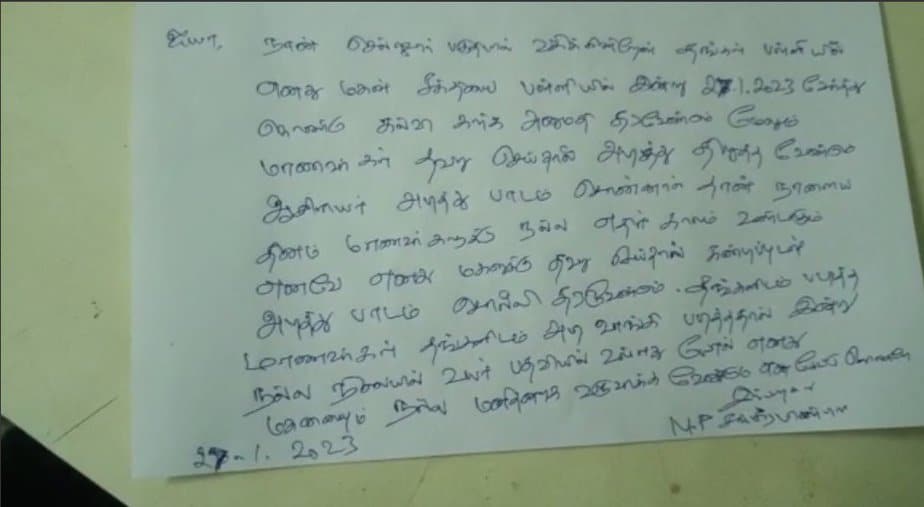 ஐயா,
நான் செல்லூர் பகுதியில் வசிக்கின்றேன் தங்கள் பள்ளியில்
எனது மகன் சீக்தயை பள்ளியில் இன்று 27.1.2023 சேர்த்து
கொண்டு கல்வி கற்க அனுமதி தரவேண்டும் மேலும்
மாணவர்கள் தவறு செய்தால் அடித்து திருத்த வேண்டும்
ஆசிரியர் அடித்து பாடம் சொன்னால் தான் நாளைய
தினம் மாணவர்களுக்கு நல்ல எதிர் காலம் உண்டாகும்
எனவே எனது மகனுக்கு தவறு செய்தால் கண்டிப்புடன்
அடித்து பாடம் சொல்லி தரவேண்டும். தங்களிடம் படித்த
மாணவர்கள் தங்களிடம் அடி வாங்கி படித்ததால் இன்று
நல்ல நிலையில் உயர் பதவியில் உள்ளது போல் எனது
மகனையும் நல்ல மனிதனாக உருவாக்க வேண்டும் என கேட்டு
இப்படிக்கு
M.P
27-1-2023